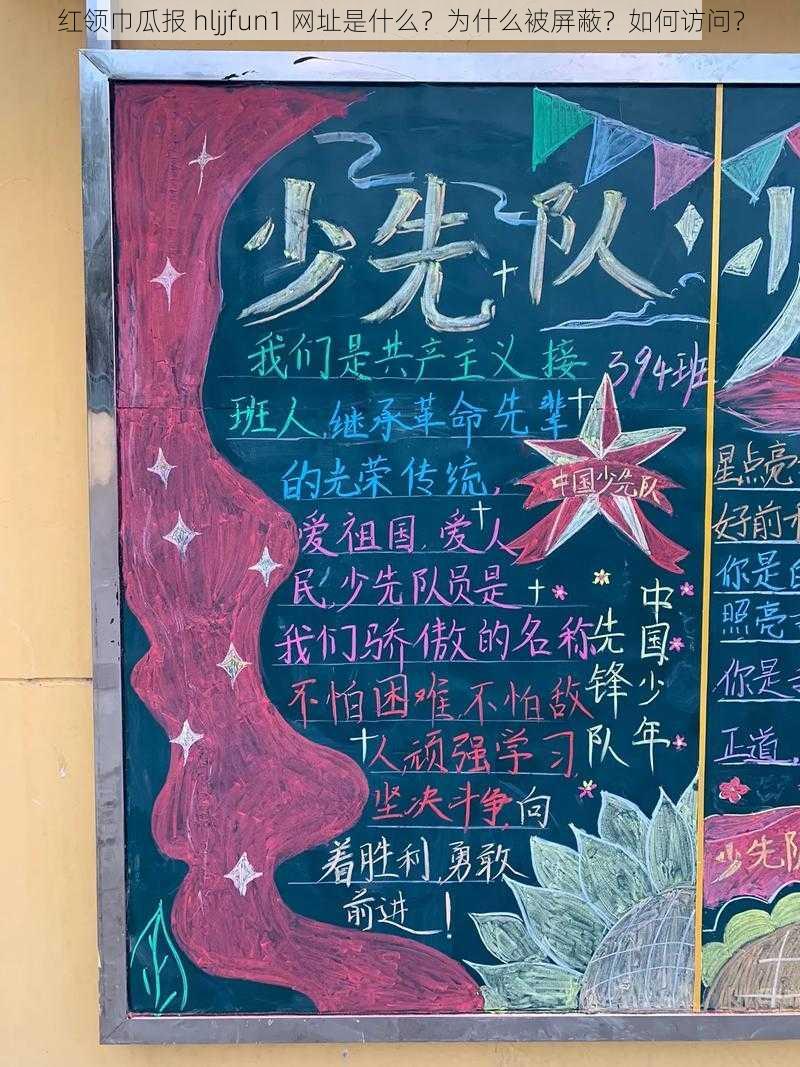 红领巾瓜报 hljjfun1 网址是什么？为什么被屏蔽？如何访问？
少先队
394班
我们是共产主义接
班人,继承革命先辈
的光荣传统,
爱祖国,爱人
民,少先队员是
我们骄傲的名称
不怕困难,不怕敌
人,顽强学习
坚决斗争,向
着胜利,勇敢
前进!
中国少先队
中国少年
先锋队
星点亮
好前
你是
照亮
你是
正道,
少先队